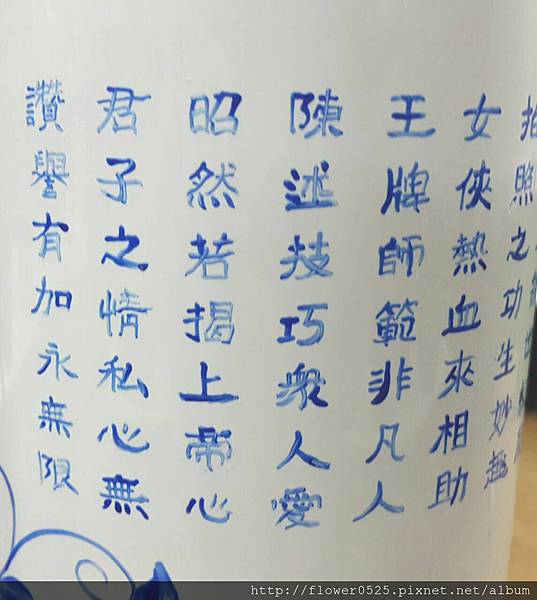 拍照之功生妙趣
女俠熱血來相助
王牌師範非凡人
陳述技巧衆人愛
昭然若揭上帝心
君子之情私心無
讚譽有加永無限
http://flower0525.pixnet.net/album